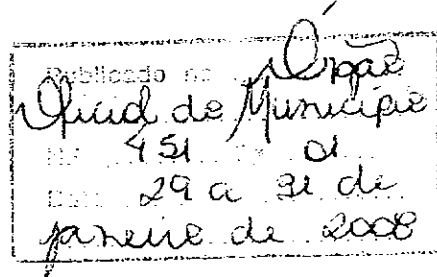 Publicado no Órgão
Oficial do Município
Nº 451 01
Data 29 a 31 de
janeiro de 2008